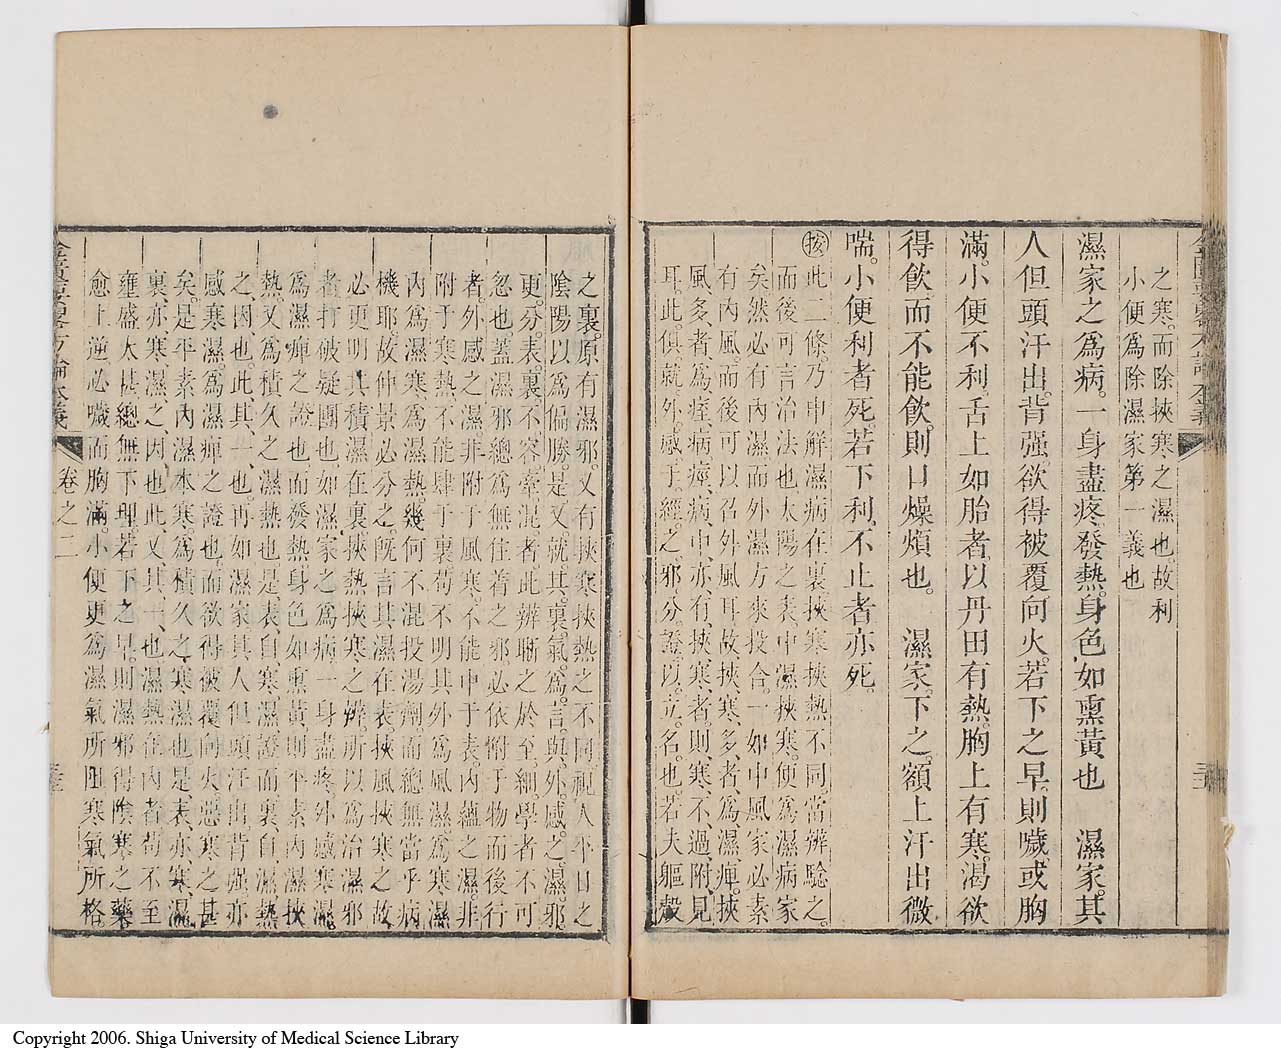 之寒。而除挾寒之濕也。故利
小便爲除濕家第一義也
濕家之爲病。一身盡疼。發熱。身色如熏黃也　濕家。其
人但頭汗出。背强。欲得被覆向火。若下之早。則噦。或胸
滿。小便不利。舌上如胎者。以丹田有熱。胸上有寒。渴欲
得飮。而不能飮。則口燥煩也。　濕家。下之。額上汗出。微
喘。小便利者死。若下利。不止者亦死。
按此二條。乃申解濕病在裏。挾寒挾熱不同。當辨驗之。
而後可言治法也。太陽之表。中濕挾寒。便爲濕病家
矣。然必有內濕。而外濕方來投合。一如中風家。必素
有內風。而後可以召外風耳。故挾寒多者。爲濕痺。挾
風多者。爲痙病。痙病中。亦有挾寒者。則寒不過附見
耳。此俱就外感于經之邪。分證以立名也。若夫軀殼
之裏。原有濕邪。又有挾寒挾熱之不同。視人平日之
陰陽以爲偏勝。是又就其裏氣爲言。與外感之濕邪
更分表裏。不容牽混者。此辨晰之於至細。學者不可
忽也。蓋濕邪總爲無住着之邪。必依附于物而後行
者。外感之濕。非附于風寒。不能中于表。內蘊之濕。非
附于寒熱。不能肆于裏。苟不明其外爲風濕爲寒濕
內爲濕寒爲濕熱。幾何不混投湯劑。而總無當乎病
機耶。故仲景必分之。旣言其濕在表。挾風挾寒之故
必更明其積濕在裏。挾熱挾寒之辨。所以爲治濕邪
者。打破疑團也。如濕家之爲病。一身盡疼。外感寒濕
爲濕痺之證也。而發熱身色如熏黃。則平素內濕挾
熱。又爲積久之濕熱也。是表自寒濕證。而裏自濕熱
之因也。此其一也。再如濕家其人但頭汗出。背强。亦
感寒濕。爲濕痺之證也。而欲得被覆向火。惡寒之甚
矣。是平素內濕本寒。爲積久之寒濕也。是表亦寒濕
裏亦寒濕之因也。此又其一也。濕熱在內者。苟不至
壅盛太甚。總無下理。若下之早。則濕邪得陰寒之藥
愈上逆。必噦而胸滿。小便更爲濕氣所阻。寒氣所格。
金匱要略方論本義
卷之二